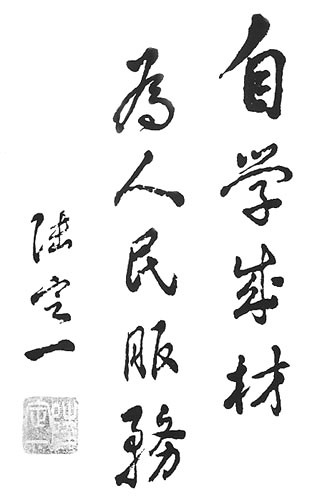 自学成材
为人民服務
陆定一